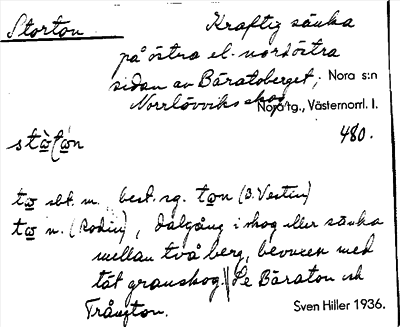 Storton
Kraftig sänka
på östra el. nordöstra
sidan av Bäratoberget; Nora s:n
Norrlövviks skog, Nora tg., Västernorrl. l.
480.
to sbt. m. best. sg. ton (B. Vestin)
to n. (Bodin), dalgång i skog eller sänka
mellan två berg, bevuxen med
tät granskog. || Se Bäraton och
Trångton.
Sven Hiller 1936.